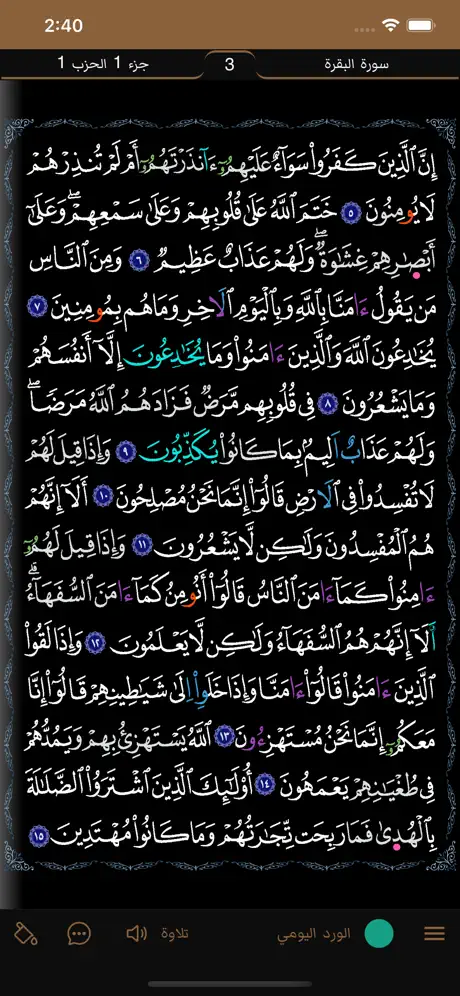 2:40
سورة البقرة 3 جزء 1 الحزب 1
إِنَّ ٱلذِينَ كَفَرُواْ سَوَآءٌ عَلَيْهِمُۥٓ ءَآنذَرْتَهُمُۥٓ أَمْ لَمْ تُنذِرْهُمْ
لَا يُومِنُونَ ٥ خَتَمَ ٱللَّهُ عَلَىٰ قُلُوبِهِمْ وَعَلَىٰ سَمْعِهِمْۖ وَعَلَىٰٓ
أَبْصَٰرِهِمْ غِشَٰوَةٌۖ وَلَهُمْ عَذَابٌ عَظِيمٌ ٦ وَمِنَ ٱلنَّاسِ
مَن يَقُولُ ءَامَنَّا بِاللَّهِ وَبِالْيَوْمِ ٱلَاخِرِ وَمَا هُم بِمُومِنِينَ ٧
يُخَٰدِعُونَ ٱللَّهَ وَٱلذِينَ ءَامَنُواْ وَمَا يُخَٰدِعُونَ إِلَّآ أَنفُسَهُمْ
وَمَا يَشْعُرُونَ ٨ فِي قُلُوبِهِم مَّرَضٌ فَزَادَهُمُ ٱللَّهُ مَرَضاۖ
وَلَهُمْ عَذَابٌ اَلِيمُۢ بِمَا كَانُواْ يُكَذِّبُونَ ٩ وَإِذَا قِيلَ لَهُمْ
لَا تُفْسِدُواْ فِي ٱلَارْضِ قَالُوٓاْ إِنَّمَا نَحْنُ مُصْلِحُونَ ١٠ أَلَآ إِنَّهُمْ
هُمُ ٱلْمُفْسِدُونَ وَلَٰكِن لَّا يَشْعُرُونَ ١١ وَإِذَا قِيلَ لَهُمُۥٓ
ءَامِنُواْ كَمَآ ءَامَنَ ٱلنَّاسُ قَالُوٓاْ أَنُومِنُ كَمَآ ءَامَنَ ٱلسُّفَهَآءُۖ
أَلَآ إِنَّهُمْ هُمُ ٱلسُّفَهَآءُ وَلَٰكِن لَّا يَعْلَمُونَ ١٢ وَإِذَا لَقُواْ
ٱلذِينَ ءَامَنُواْ قَالُوٓاْ ءَامَنَّا وَإِذَا خَلَوِاْ اِلَىٰ شَيَٰطِينِهِمْ قَالُوٓاْ إِنَّا
مَعَكُمُۥٓ إِنَّمَا نَحْنُ مُسْتَهْزِءُونَ ١٣ ٱللَّهُ يَسْتَهْزِئُ بِهِمْ وَيَمُدُّهُمْ
فِي طُغْيَٰنِهِمْ يَعْمَهُونَ ١٤ أُوْلَٰٓئِكَ ٱلذِينَ ٱشْتَرَوُاْ ٱلضَّلَٰلَةَ
بِالْهُدَىٰ فَمَا رَبِحَت تِّجَٰرَتُهُمْ وَمَا كَانُواْ مُهْتَدِينَ ١٥
الورد اليومي تلاوة